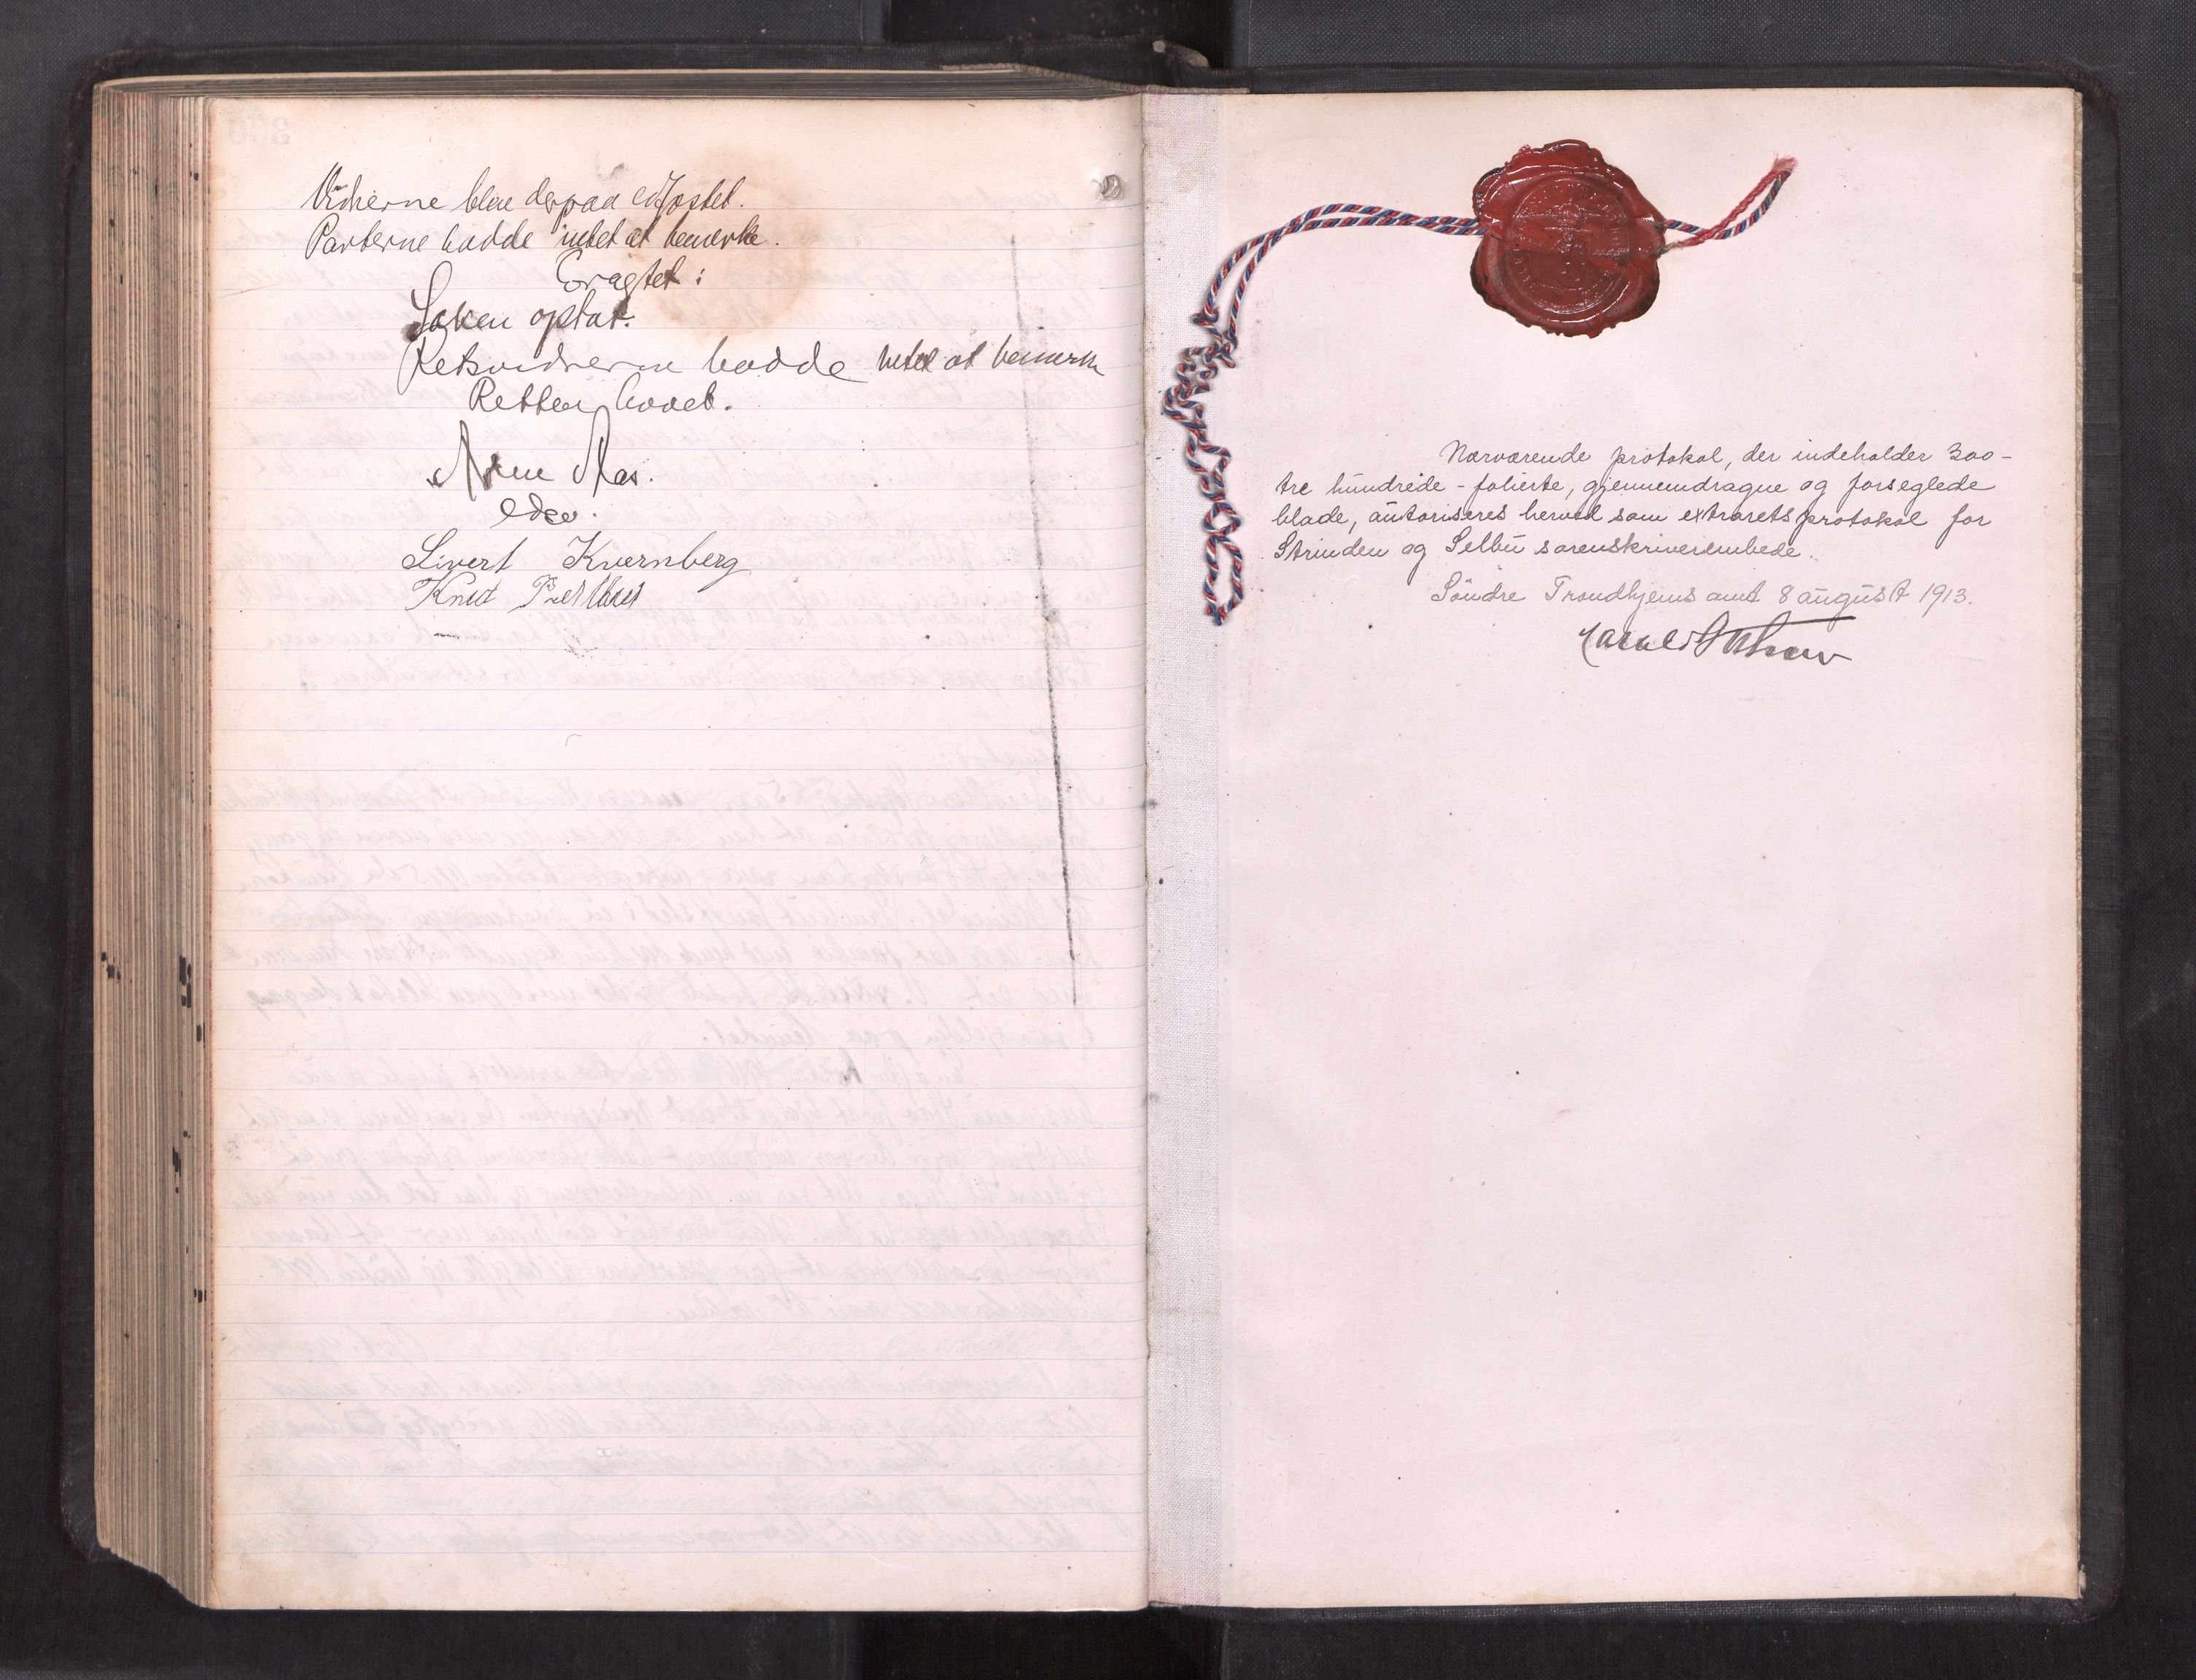 Vidnerne blev derpaa edfæstet.
Parterne hadde intet at bemerke.
Eragtet:
Saken optat.
Retsvidnerne hadde intet at bemerke
Retten hævet.
Arne Aas.
edsv.
Sivert Kvernberg
Knut
Nærværende protokol, der indeholder 300-
tre hundrede - folierte, gjennemdragne og forseglede
blade, autoriseres herved som extraretsprotokol for
Strinden og Selbu sorenskriverembede.
Söndre Trondhjems amt 8 august 1913.